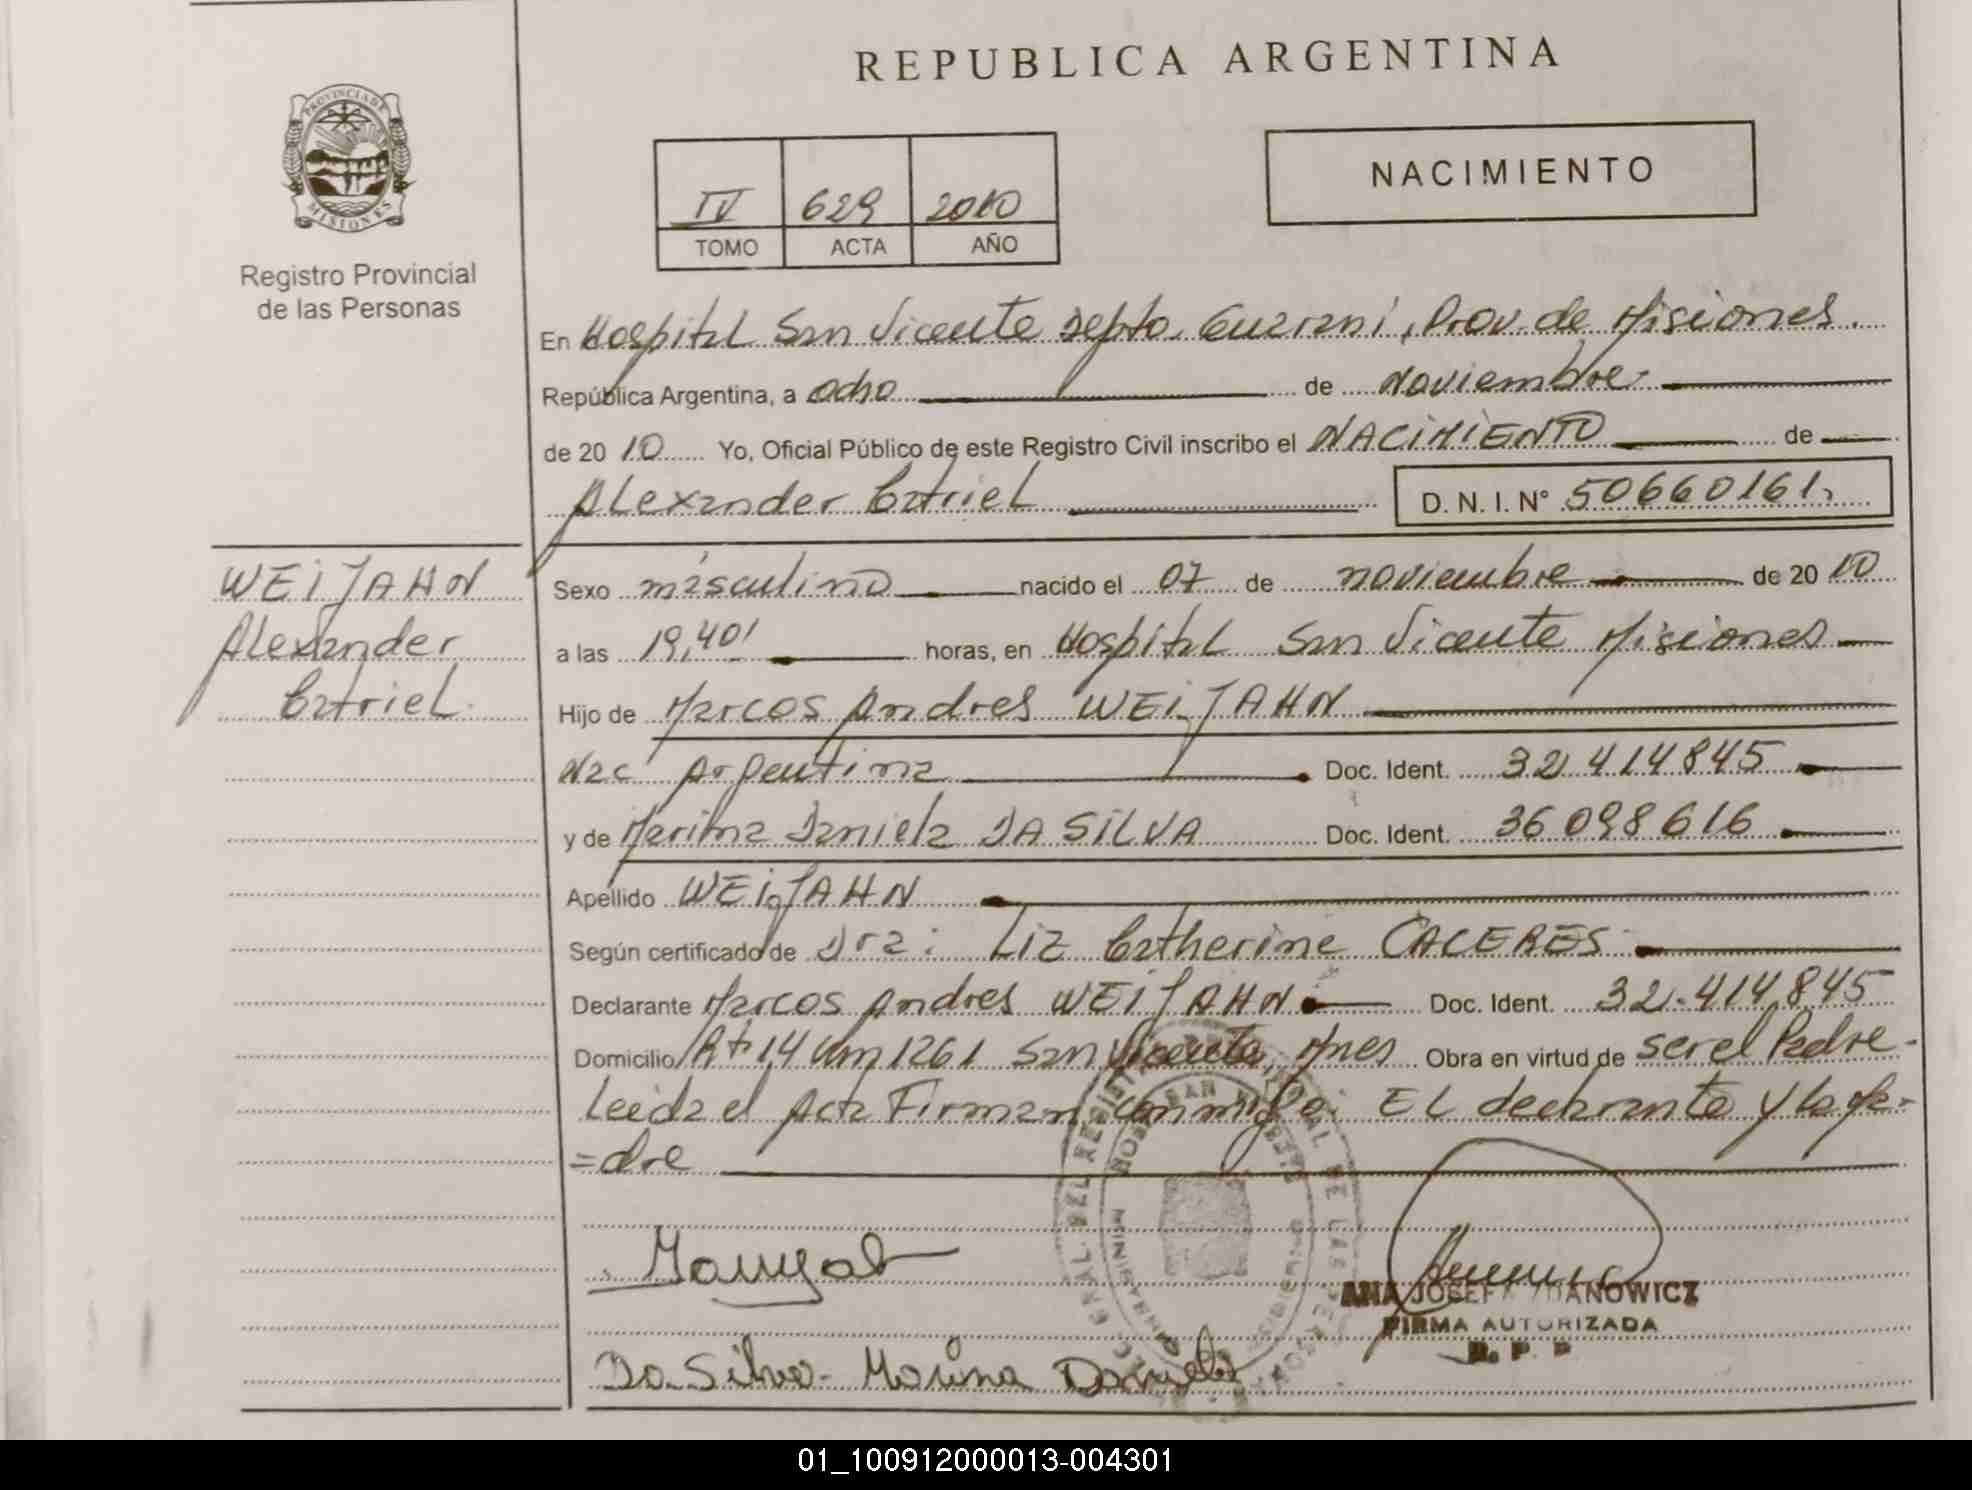 REPUBLICA ARGENTINA
PROVINCIA DE
MISIONES
Registro Provincial
de las Personas
IV 629 2010
TOMO ACTA AÑO
NACIMIENTO
En Hospital San Vicente Depto. Guarani, Prov. de Misiones.
República Argentina, a ocho de Noviembre.
de 2010 Yo, Oficial Público de este Registro Civil inscribo el NACIMIENTO de
Alexander Catriel D. N. I. N° 50660161.
WEIJAHN
Alexander
Catriel
Sexo masculino nacido el 07 de noviembre de 2010
a las 19,40' horas, en Hospital San Vicente Misiones
Hijo de Marcos Andres WEIJAHN
Nac Argentina Doc. Ident. 32 414 845
y de Marina Daniela DA SILVA Doc. Ident. 36 098 616
Apellido WEIJAHN
Según certificado de Dra: Liz Catherine CACERES
Declarante Marcos Andres WEIJAHN Doc. Ident. 32.414.845
Domicilio Rta 14 km 1261 San Vicente, Mnes Obra en virtud de ser el Padre-
Leida el Acta Firman conmigo: EL declarante y la Ma-
=dre
ANA JOSEFA ZDANOWICZ
FIRMA AUTORIZADA
R. P. P
Da Silva Marina Daniela
01_100912000013-004301